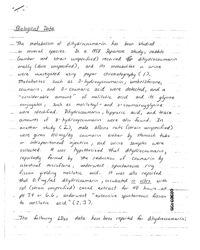 Biological Data
The metabolism of dihydrocoumarin has been studied
in several species. In a 1958 Japanese study, rabbits
(number and strain unspecified) received dihydrocoumarin
orally (dose unspecified), and its metabolites in urine
were investigated using paper chromatography (1).
Metabolites such as 3-hydroxycoumarin, umbelliferone,
coumarin, and o-coumaric acid were detected, and a
"considerable amount" of melilotic acid and its glycine
conjugates, such as melilotyl- and o-coumarylglycine
were identified. Dihydrocoumarin, hippuric acid, and trace
amounts of 8-hydroxycoumarin were also found. In
another study (2), male albino rats (strain unspecified)
were given dihydrocoumarin either by stomach tube
or intraperitoneal injection, and urine samples were
collected. It was hypothesized that dihydrocoumarin,
reportedly formed by the reduction of coumarin by
intestinal microflora, underwent spontaneous ring
fission yielding melilotic acid. It was also reported
that dihydrocoumarin, incubated in vitro with
rat (strain unspecified) caecal extract for 48 hours at
pH underwent "extensive spontaneous fission
to melilotic acid" (2,3).
The following LD50 data has been reported for dihydrocoumarin: